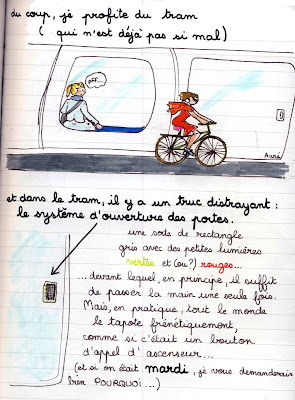 du coup, je profite du tram
( qui n'est déjà pas si mal)
off...
Auré
et dans le tram, il y a un truc distrayant :
le système d'ouverture des portes.
une sorte de rectangle
gris avec des petites lumières
vertes et (ou?) rouges...
... devant lequel, en principe, il suffit
de passer la main une seule fois.
Mais, en pratique, tout le monde
le tapote frénétiquement,
comme si c'était un bouton
d'appel d'ascenseur...
(et si on était mardi, je vous demanderais
bien POURQUOI...)